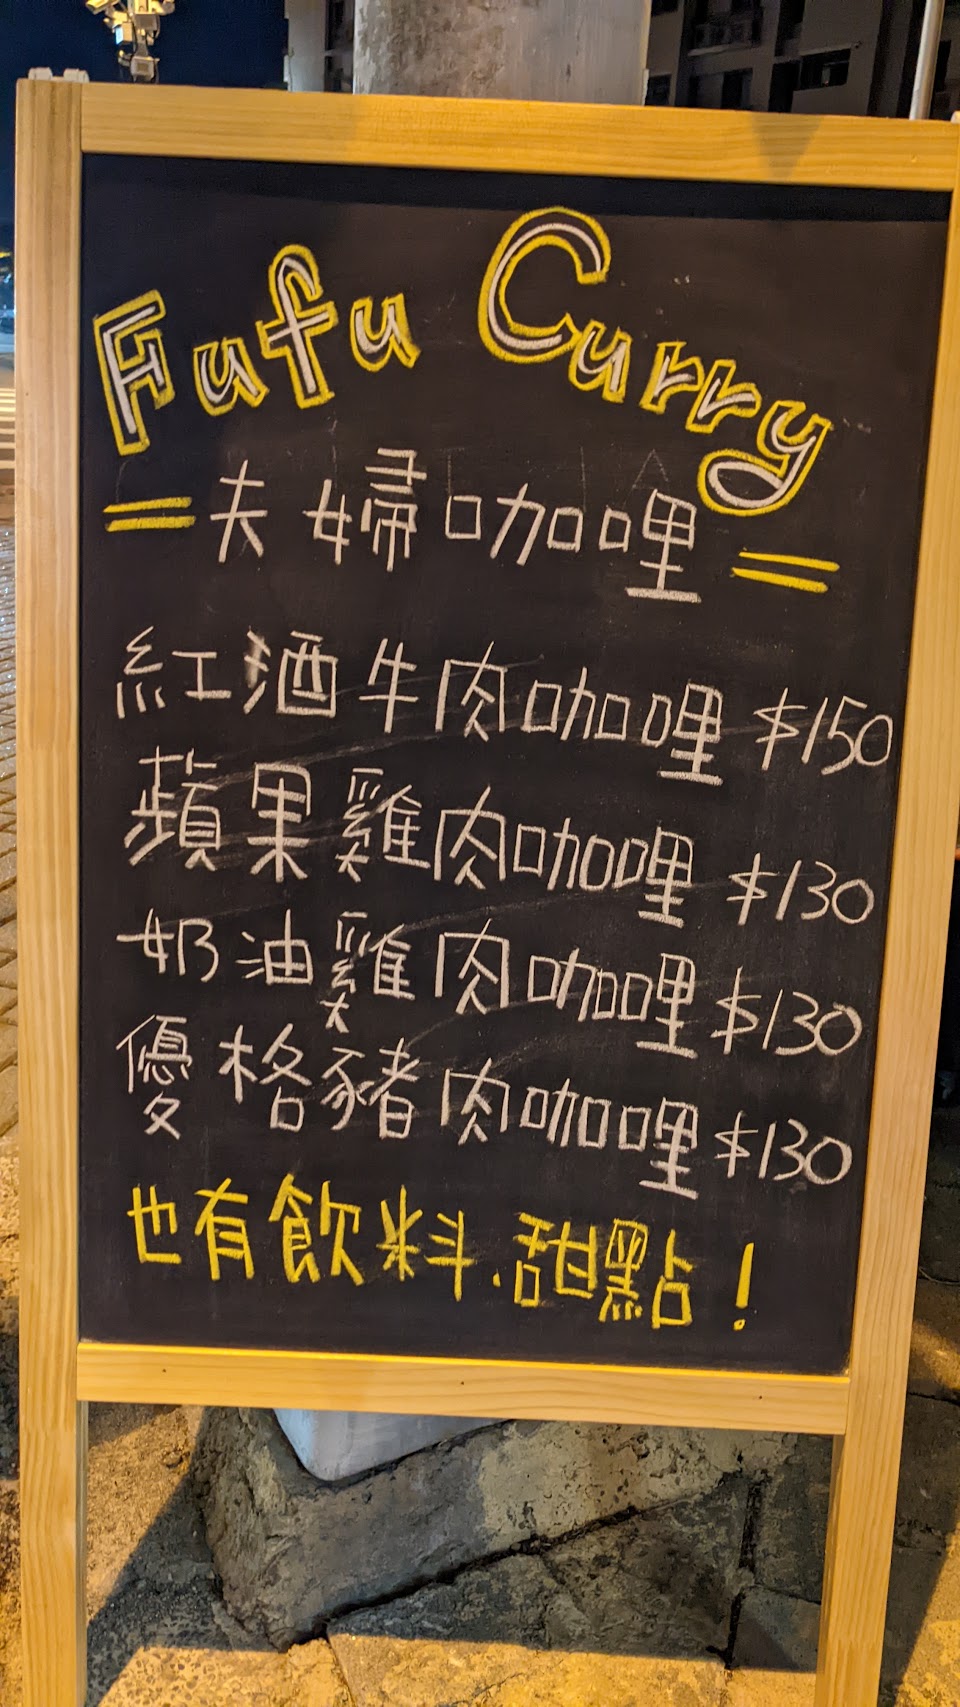 Fufu Curry
=夫婦咖哩=
紅酒牛肉咖哩 $150
蘋果雞肉咖哩 $130
奶油雞肉咖哩 $130
優格豬肉咖哩 $130
也有飲料、甜點!